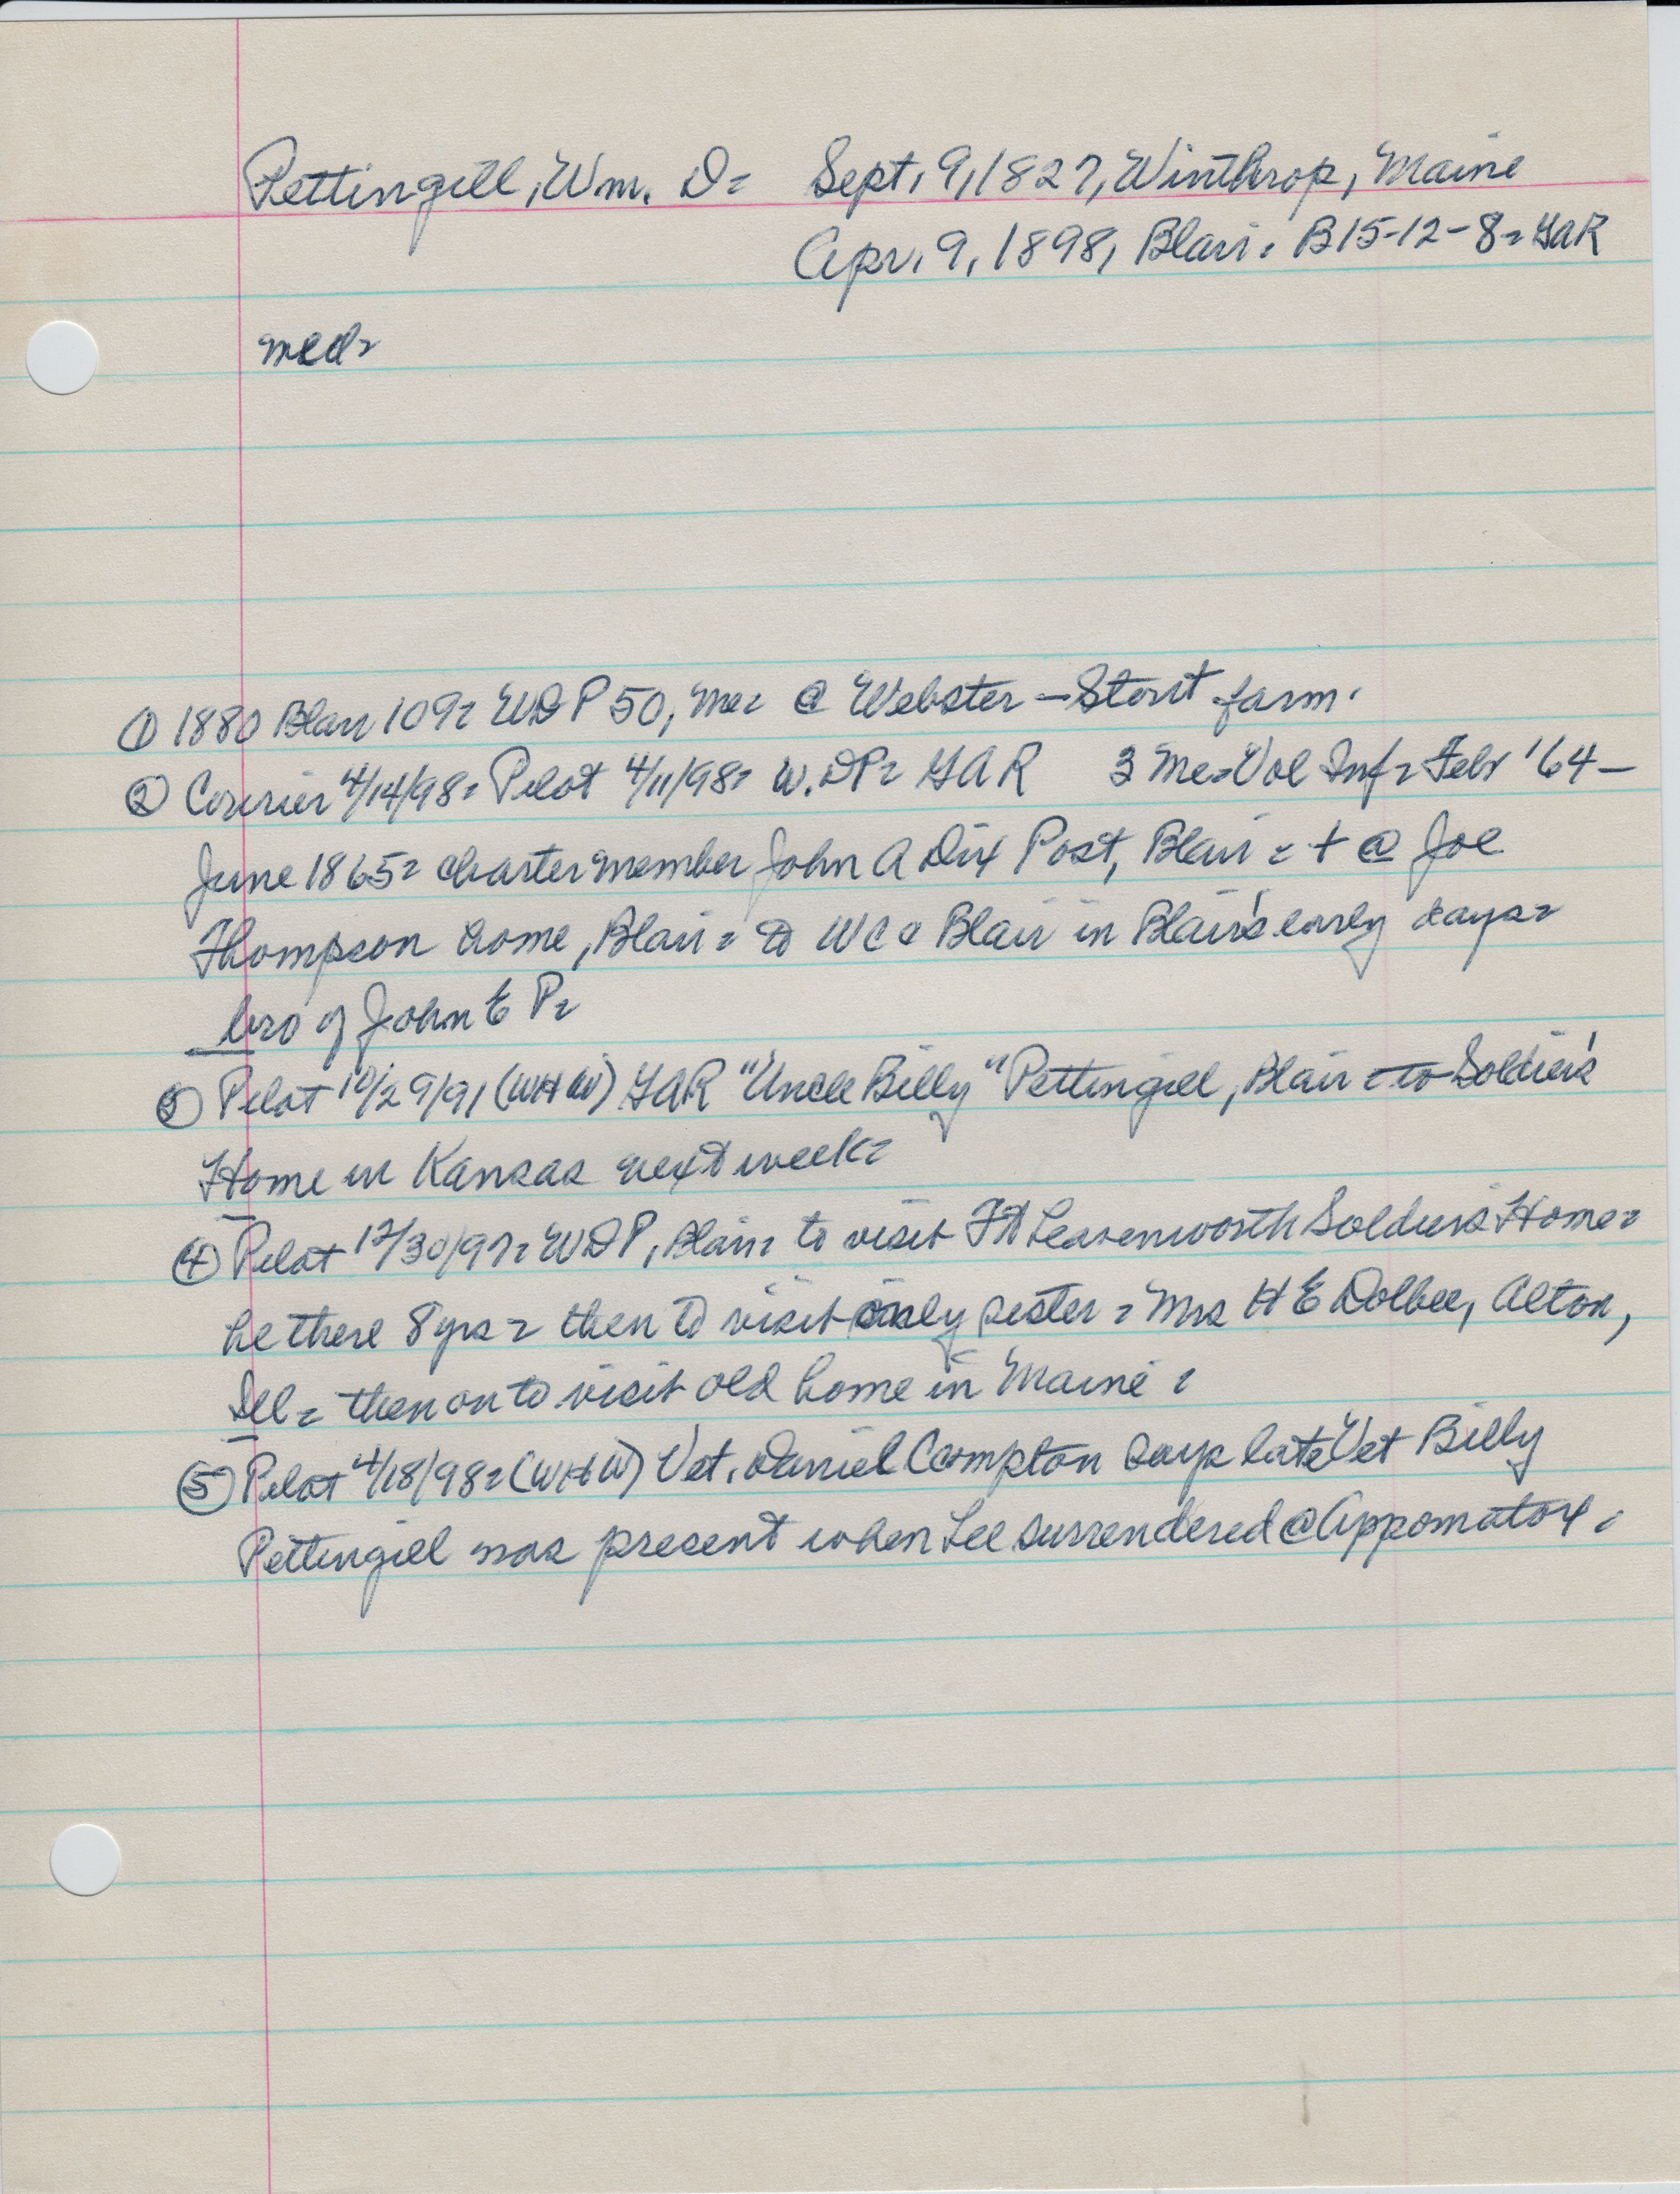 Pettingill, Wm. D= Sept. 9, 1827, Winthrop, Maine
Apr. 9, 1898, Blair. B15-12-8= GAR
med=
① 1880 Blair 109= WDP 50, Me= @ Webster - Stout farm.
② Courier 4/14/98= Pilot 4/11/98= W.DP= GAR 3 Me=Vol Inf= Febr '64-
June 1865= charter member John A Dix Post, Blair = + @ Joe
Thompson home, Blair= to WC & Blair in Blair's early days=
bro of John E P=
③ Pilot 10/29/91 (WHW) GAR "Uncle Billy" Pettingill, Blair = to Soldier's
Home in Kansas next week=
④ Pilot 12/30/97= WDP, Blair= to visit Ft Leavenworth Soldiers Home=
he there 8 yrs= then to visit only sister = Mrs H E Dolbee, Alton,
Ill= then on to visit old home in Maine =
⑤ Pilot 4/18/98= (WHW) Vet. Daniel Compton says late Vet Billy
Pettingill was present when Lee surrendered @ Appomatox.